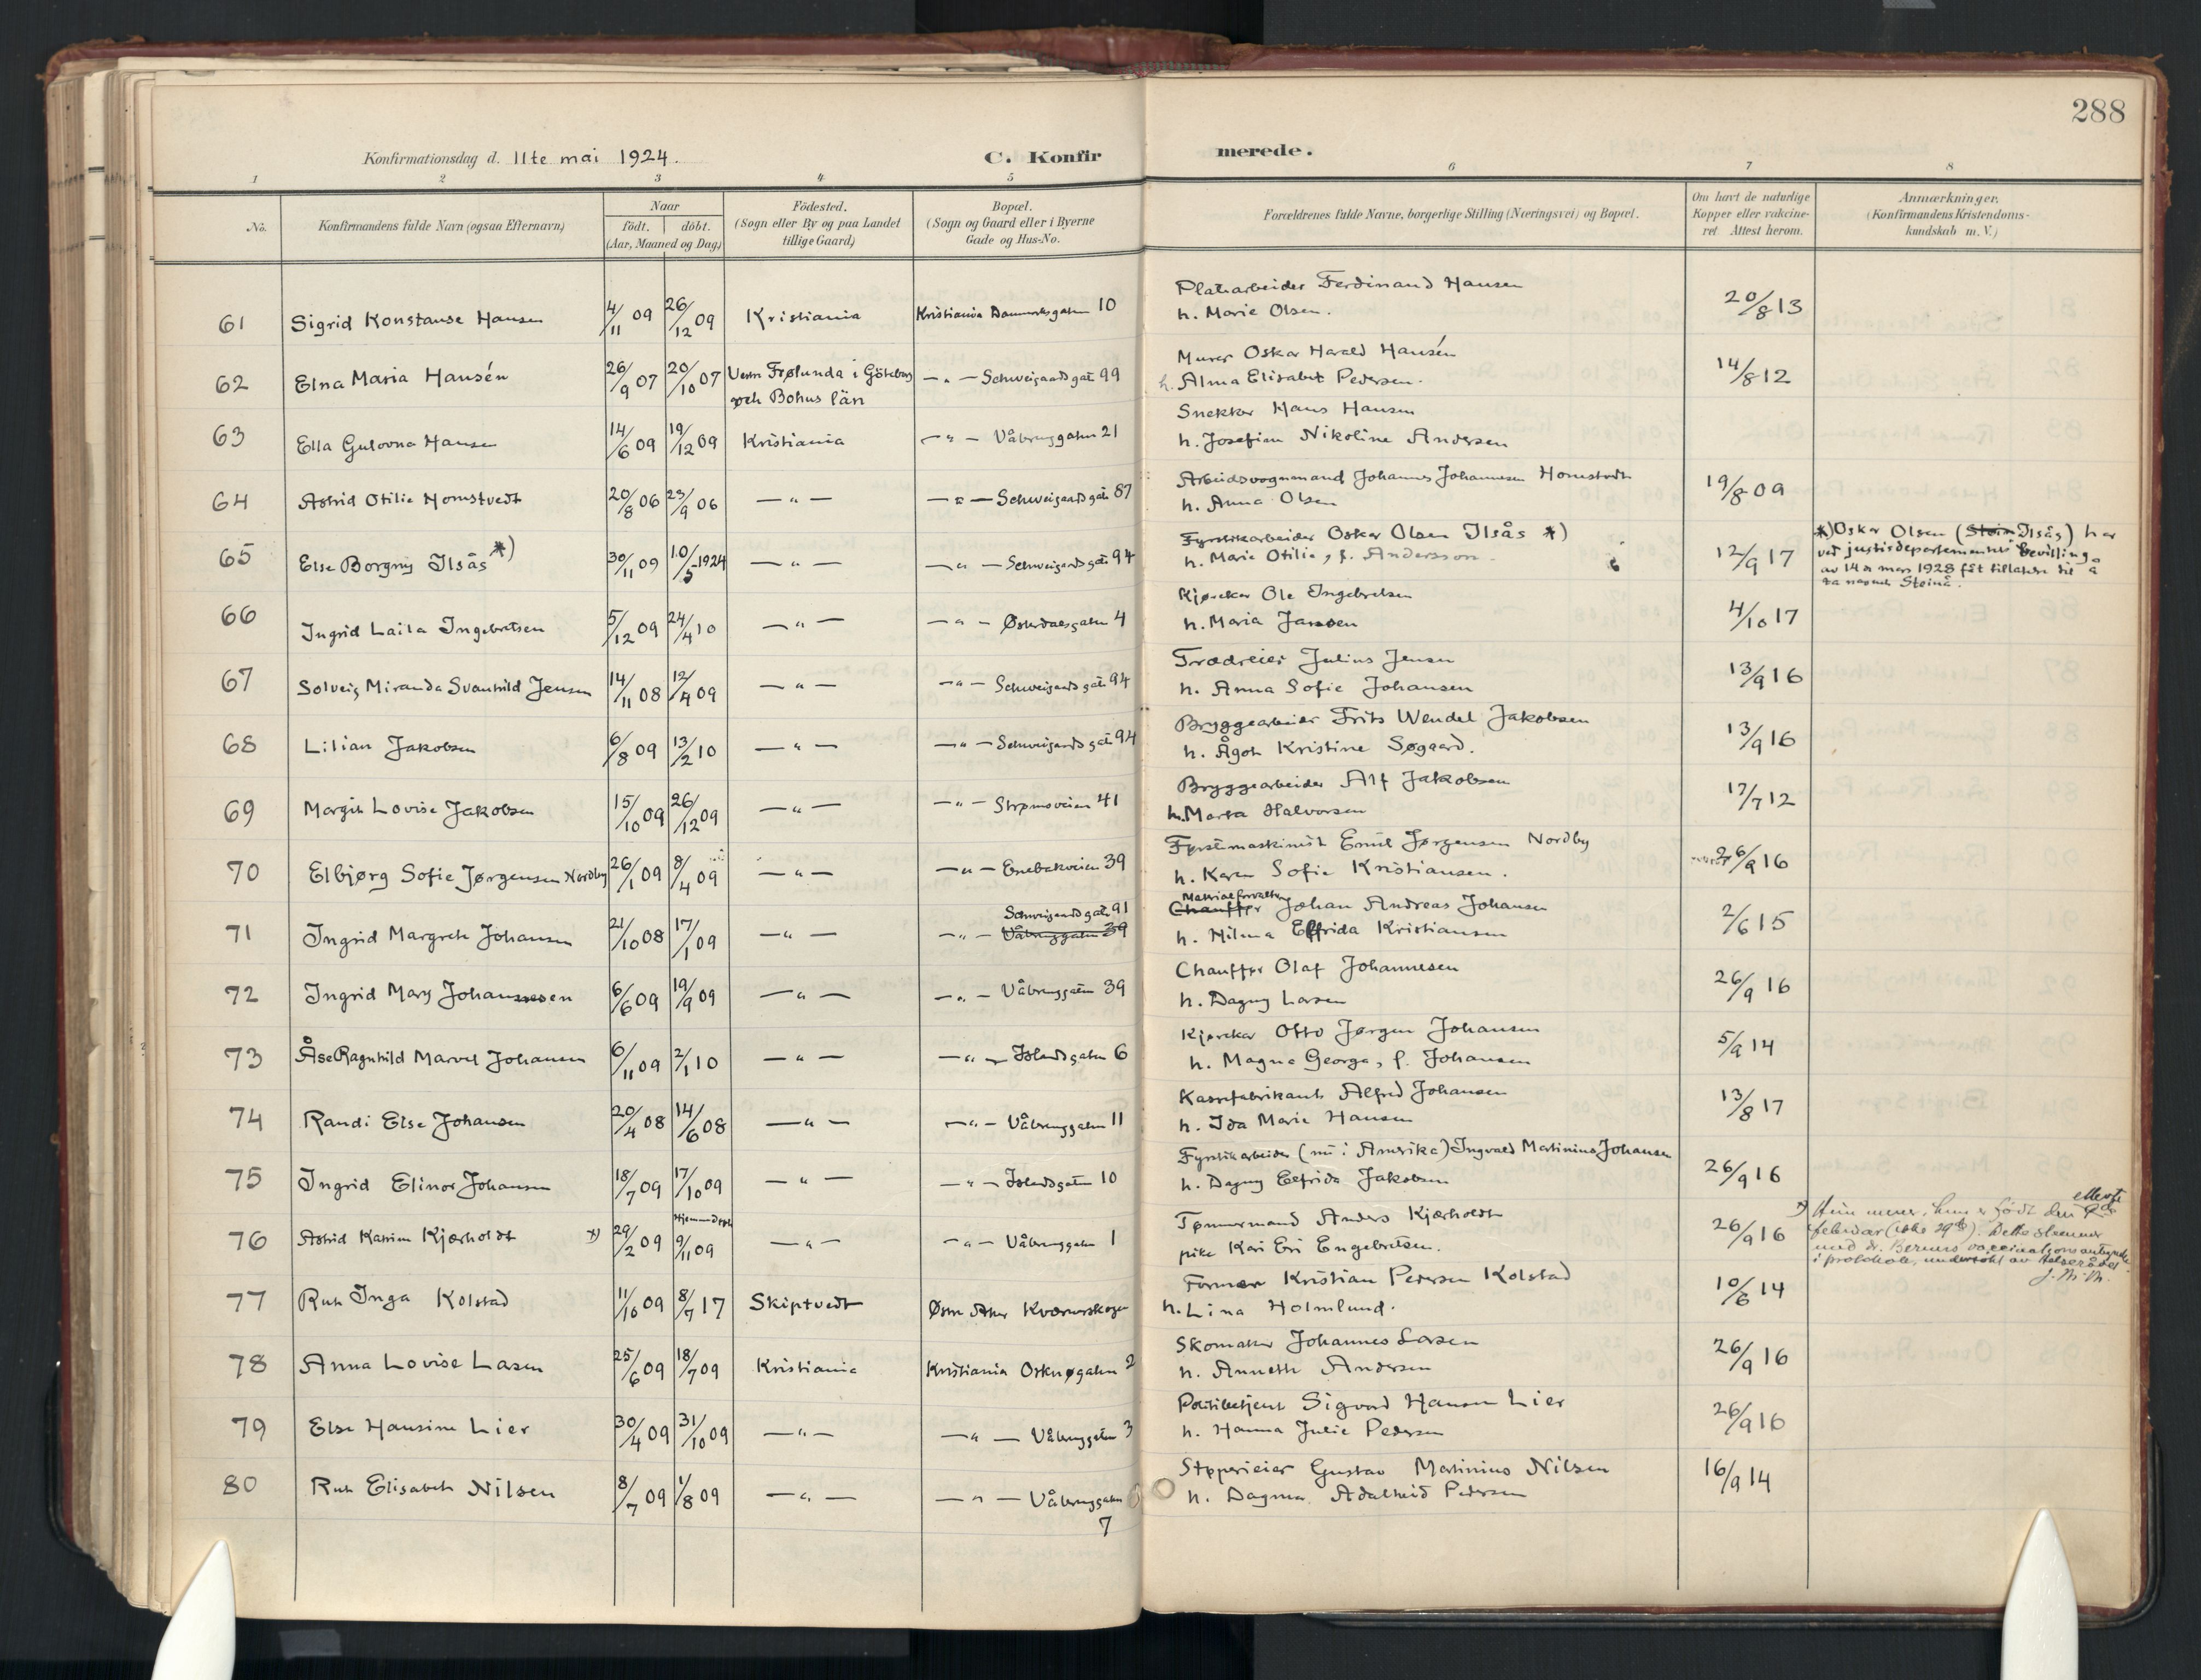 288
Konfirmationsdag d. 11te mai 1924.
C. Konfirmerede.
1 2 3 4 5 6 7 8
No.
Konfirmandens fulde Navn (ogsaa Efternavn)
Naar
födt. döbt.
(Aar, Maaned og Dag)
Födested.
(Sogn eller By og paa Landet
tillige Gaard)
Bopæl.
(Sogn og Gaard eller i Byerne
Gade og Hus-No.
Forældrenes fulde Navne, borgerlige Stilling (Næringsvei) og Bopæl.
Om havt de naturlige
Kopper eller vakcine-
ret. Attest herom.
Anmærkninger.
(Konfirmandens Kristendoms-
kundskab m. V.)
61 Sigrid Konstanse Hansen 4/11 09 26/12 09 Kristiania Kristiania Danmarksgaten 10
Platearbeider Ferdinand Hansen
h. Marie Olsen. 20/8 13
62 Elna Maria Hansén 26/9 07 20/10 07 Vestra Frølunda i Göteborg
och Bohus län — " — Schweigaardsgate 99
Murer Oskar Harald Hansén
h. Alma Elisabet Pedersen. 14/8 12
63 Ella Gulovna Hansen 14/6 09 19/12 09 Kristiania — " — Vålerenggaten 21
Snekker Hans Hansen
h. Josefine Nikoline Andersen
64 Astrid Otilie Homstvedt 20/8 06 23/9 06 — " — — " — Schweigaardsgate 87
Arbeidsvognmand Johannes Johannesen Homstvedt
h. Anna Olsen 19/8 09
65 Else Borgny Ilsås *) 30/11 09 10/5-1924 — " — — " — Schweigaardsgate 94
Fyrstikarbeider Oskar Olsen Ilsås *)
h. Marie Otilie, f. Andersson. 12/9 17
*) Oskar Olsen (Stein Ilsås) har
ved justisdepartementets bevilling
av 14 de mars 1928 fåt tillatelse til å
ta navnet Steinå.
66 Ingrid Laila Ingebretsen 5/12 09 24/4 10 — " — — " — Østerdalsgaten 4
Kjørekar Ole Ingebretsen
h. Maria Jansen 4/10 17
67 Solveig Miranda Svanhild Jensen 14/11 08 12/4 09 — " — — " — Schweigaardsgate 94
Trædreier Julius Jensen
h. Anna Sofie Johansen 13/9 16
68 Lilian Jakobsen 6/8 09 13/2 10 — " — — " — Schweigaardsgate 94
Bryggearbeider Frits Wendel Jakobsen
h. Ågot Kristine Søgaard. 13/9 16
69 Margit Lovise Jakobsen 15/10 09 26/12 09 — " — — " — Strømsveien 41
Bryggearbeider Alf Jakobsen
h. Marta Halvorsen 17/7 12
70 Elbjørg Sofie Jørgensen Nordby 26/1 09 8/4 09 — " — — " — Enebakveien 39
Fyrstikmaskinist Emil Jørgensen Nordby
h. Karen Sofie Kristiansen. 26/9 16
71 Ingrid Margrete Johansen 21/10 08 17/1 09 — " — Schweigaardsgate 91
— " — Vålerenggaten 39
Materialforvalter
Chauffør Johan Andreas Johansen
h. Hilma Elfrida Kristiansen 2/6 15
72 Ingrid Mary Johannesen 6/6 09 19/9 09 — " — — " — Vålerenggaten 39
Chauffør Olaf Johannesen
h. Dagny Larsen 26/9 16
73 Åse Ragnhild Marvel Johansen 6/11 09 2/1 10 — " — — " — Islandsgaten 6
Kjørekar Otto Jørgen Johansen
h. Magna Georga, f. Johansen 5/9 14
74 Randi Else Johansen 20/4 08 14/6 08 — " — — " — Vålerenggaten 11
Kassefabrikant Alfred Johansen
h. Ida Marie Hansen 13/8 17
75 Ingrid Elinor Johansen 18/7 09 17/10 09 — " — — " — Islandsgaten 10
Fyrstikarbeider (nu i Amerika) Ingvald Martinius Johansen
h. Dagny Elfrida Jakobsen 26/9 16
76 Astrid Katrine Kjærholdt *) 29/2 09 Hjemmedøpt 9/11 09 — " — — " — Vålerenggaten 1
Tømmermand Anders Kjærholdt
pike Kari Eri Engebretsen. 26/9 16
*) Hun mener, hun er født den ellevte
februar (ikke 29de). Dette stemmer
med dr. Berners vaccinationsantegnelse
i protokoll, undersøkt av Helserådet
77 Rut Inga Kolstad 11/10 09 8/7 17 Skiptvedt Østre Aker Kværnerskogen
Former Kristian Pedersen Kolstad
h. Lina Holmlund. 10/6 14
78 Anna Lovise Larsen 25/6 09 18/7 09 Kristiania Kristiania Osknøgaten 2
Skomaker Johannes Larsen
h. Annette Andersen 26/9 16
79 Else Hansine Lier 30/4 09 31/10 09 — " — — " — Vålerenggaten 3
Politibetjent Sigvard Hansen Lier
h. Hanna Julie Pedersen 26/9 16
80 Rut Elisabeth Nilsen 8/7 09 1/8 09 — " — — " — Vålerenggaten
7
Støperieier Gustav Martinius Nilsen
h. Dagmar Adalheid Pedersen 16/9 14